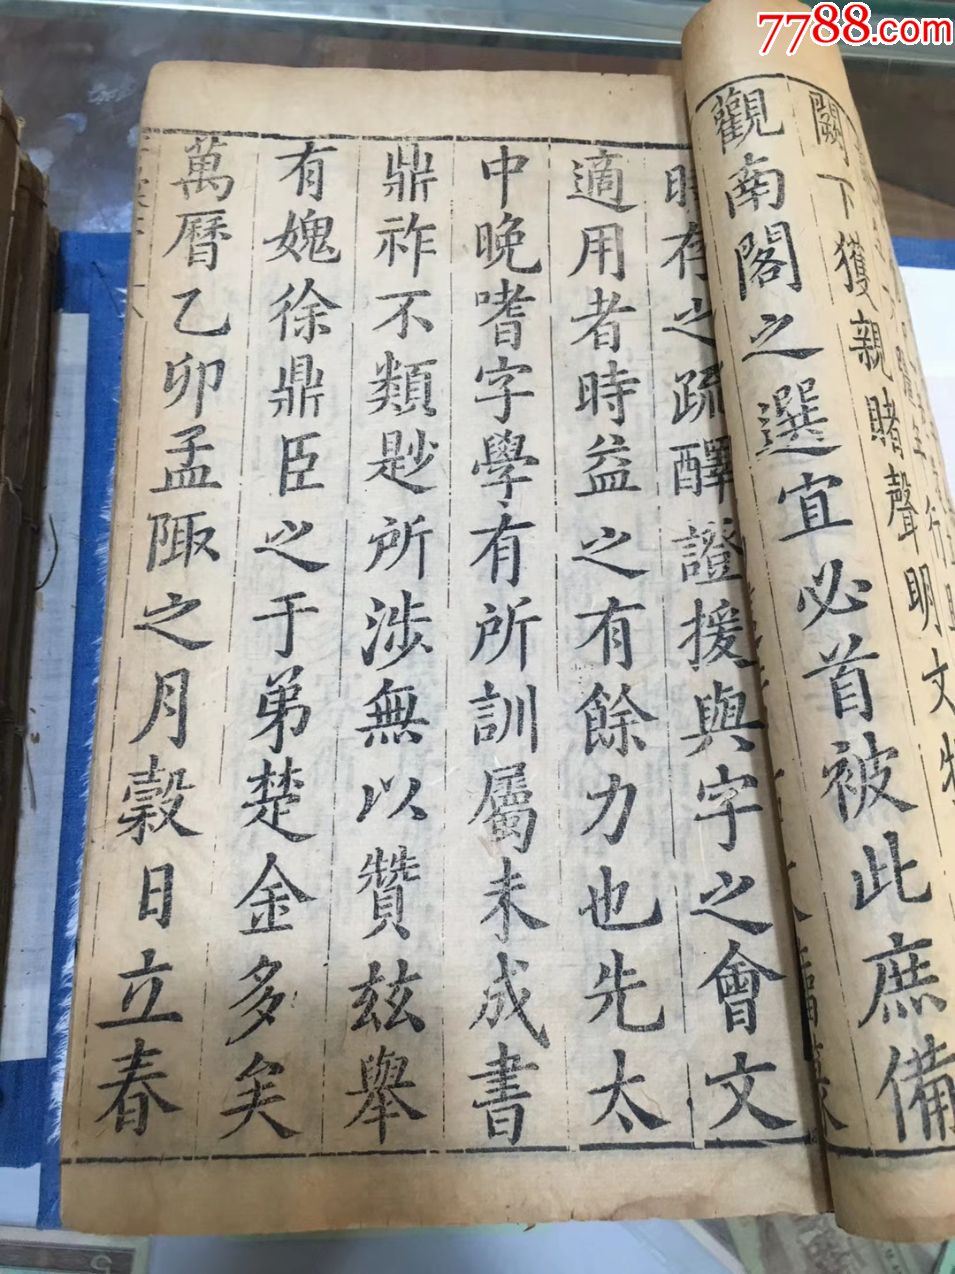 7788.com
闕下獲親賭聲明文物
觀南閣之選宜必首被此庶備
時存之疏釋證援與字之會文
適用者時益之有餘力也先太
中晚嗜字學有所訓屬未成書
鼎祚不類尟所涉無以贊茲舉
有媿徐鼎臣之于弟楚金多矣
萬曆乙卯孟陬之月穀日立春